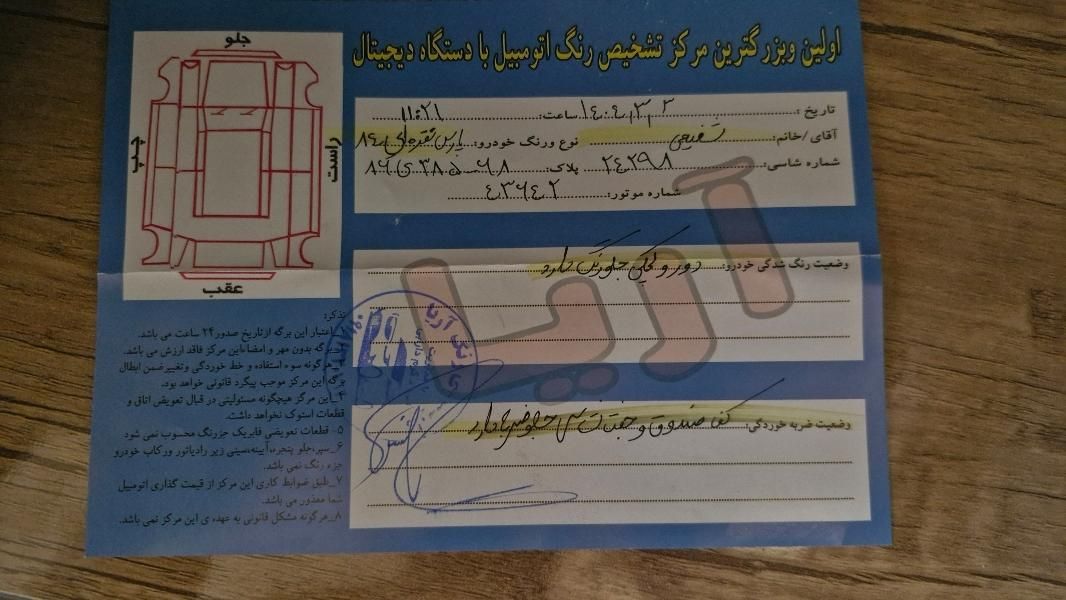 اولین وبزرگترین مرکز تشخیص رنگ اتومبیل با دستگاه دیجیتال
جلو
راست
چپ
عقب
تاریخ: ۱۴۰۴،۳،۲ ساعت: ۱۱:۲۱
آقای/خانم: نوع ورنگ خودرو: پارس نقره‌ای ۸۴
شماره شاسی: ۲۴۲۹۸ پلاک:
شماره موتور: ۴۳۶۴۲
وضعیت رنگ شدگی خودرو: دور و گلگیر جلو رنگ دارد
وضعیت ضربه خوردگی: کف صندوق و جفت شاسی جلو ضربه دارد
آریا
تذکر:
۱_اعتبار این برگه ازتاریخ صدور ۲۴ ساعت می باشد.
برگه بدون مهر و امضاءاین مرکز فاقد ارزش می باشد.
هرگونه سوء استفاده و خط خوردگی وتغییرضمن ابطال
برگه این مرکز موجب پیگرد قانونی خواهد بود.
۴_این مرکز هیچگونه مسئولیتی در قبال تعویض اتاق و
قطعات استوک نخواهد داشت.
۵- قطعات تعویضی فابریک جزرنگ محسوب نمی شود
۶_سپرجلو پنجره،آیینه،سینی زیر رادیاتور ورکاب خودرو
جزء رنگ نمی باشد.
۷_طبق ضوابط کاری این مرکز از قیمت گذاری اتومبیل
شما معذور می باشد.
۸_هرگونه مشکل قانونی به عهده ی این مرکز نمی باشد.